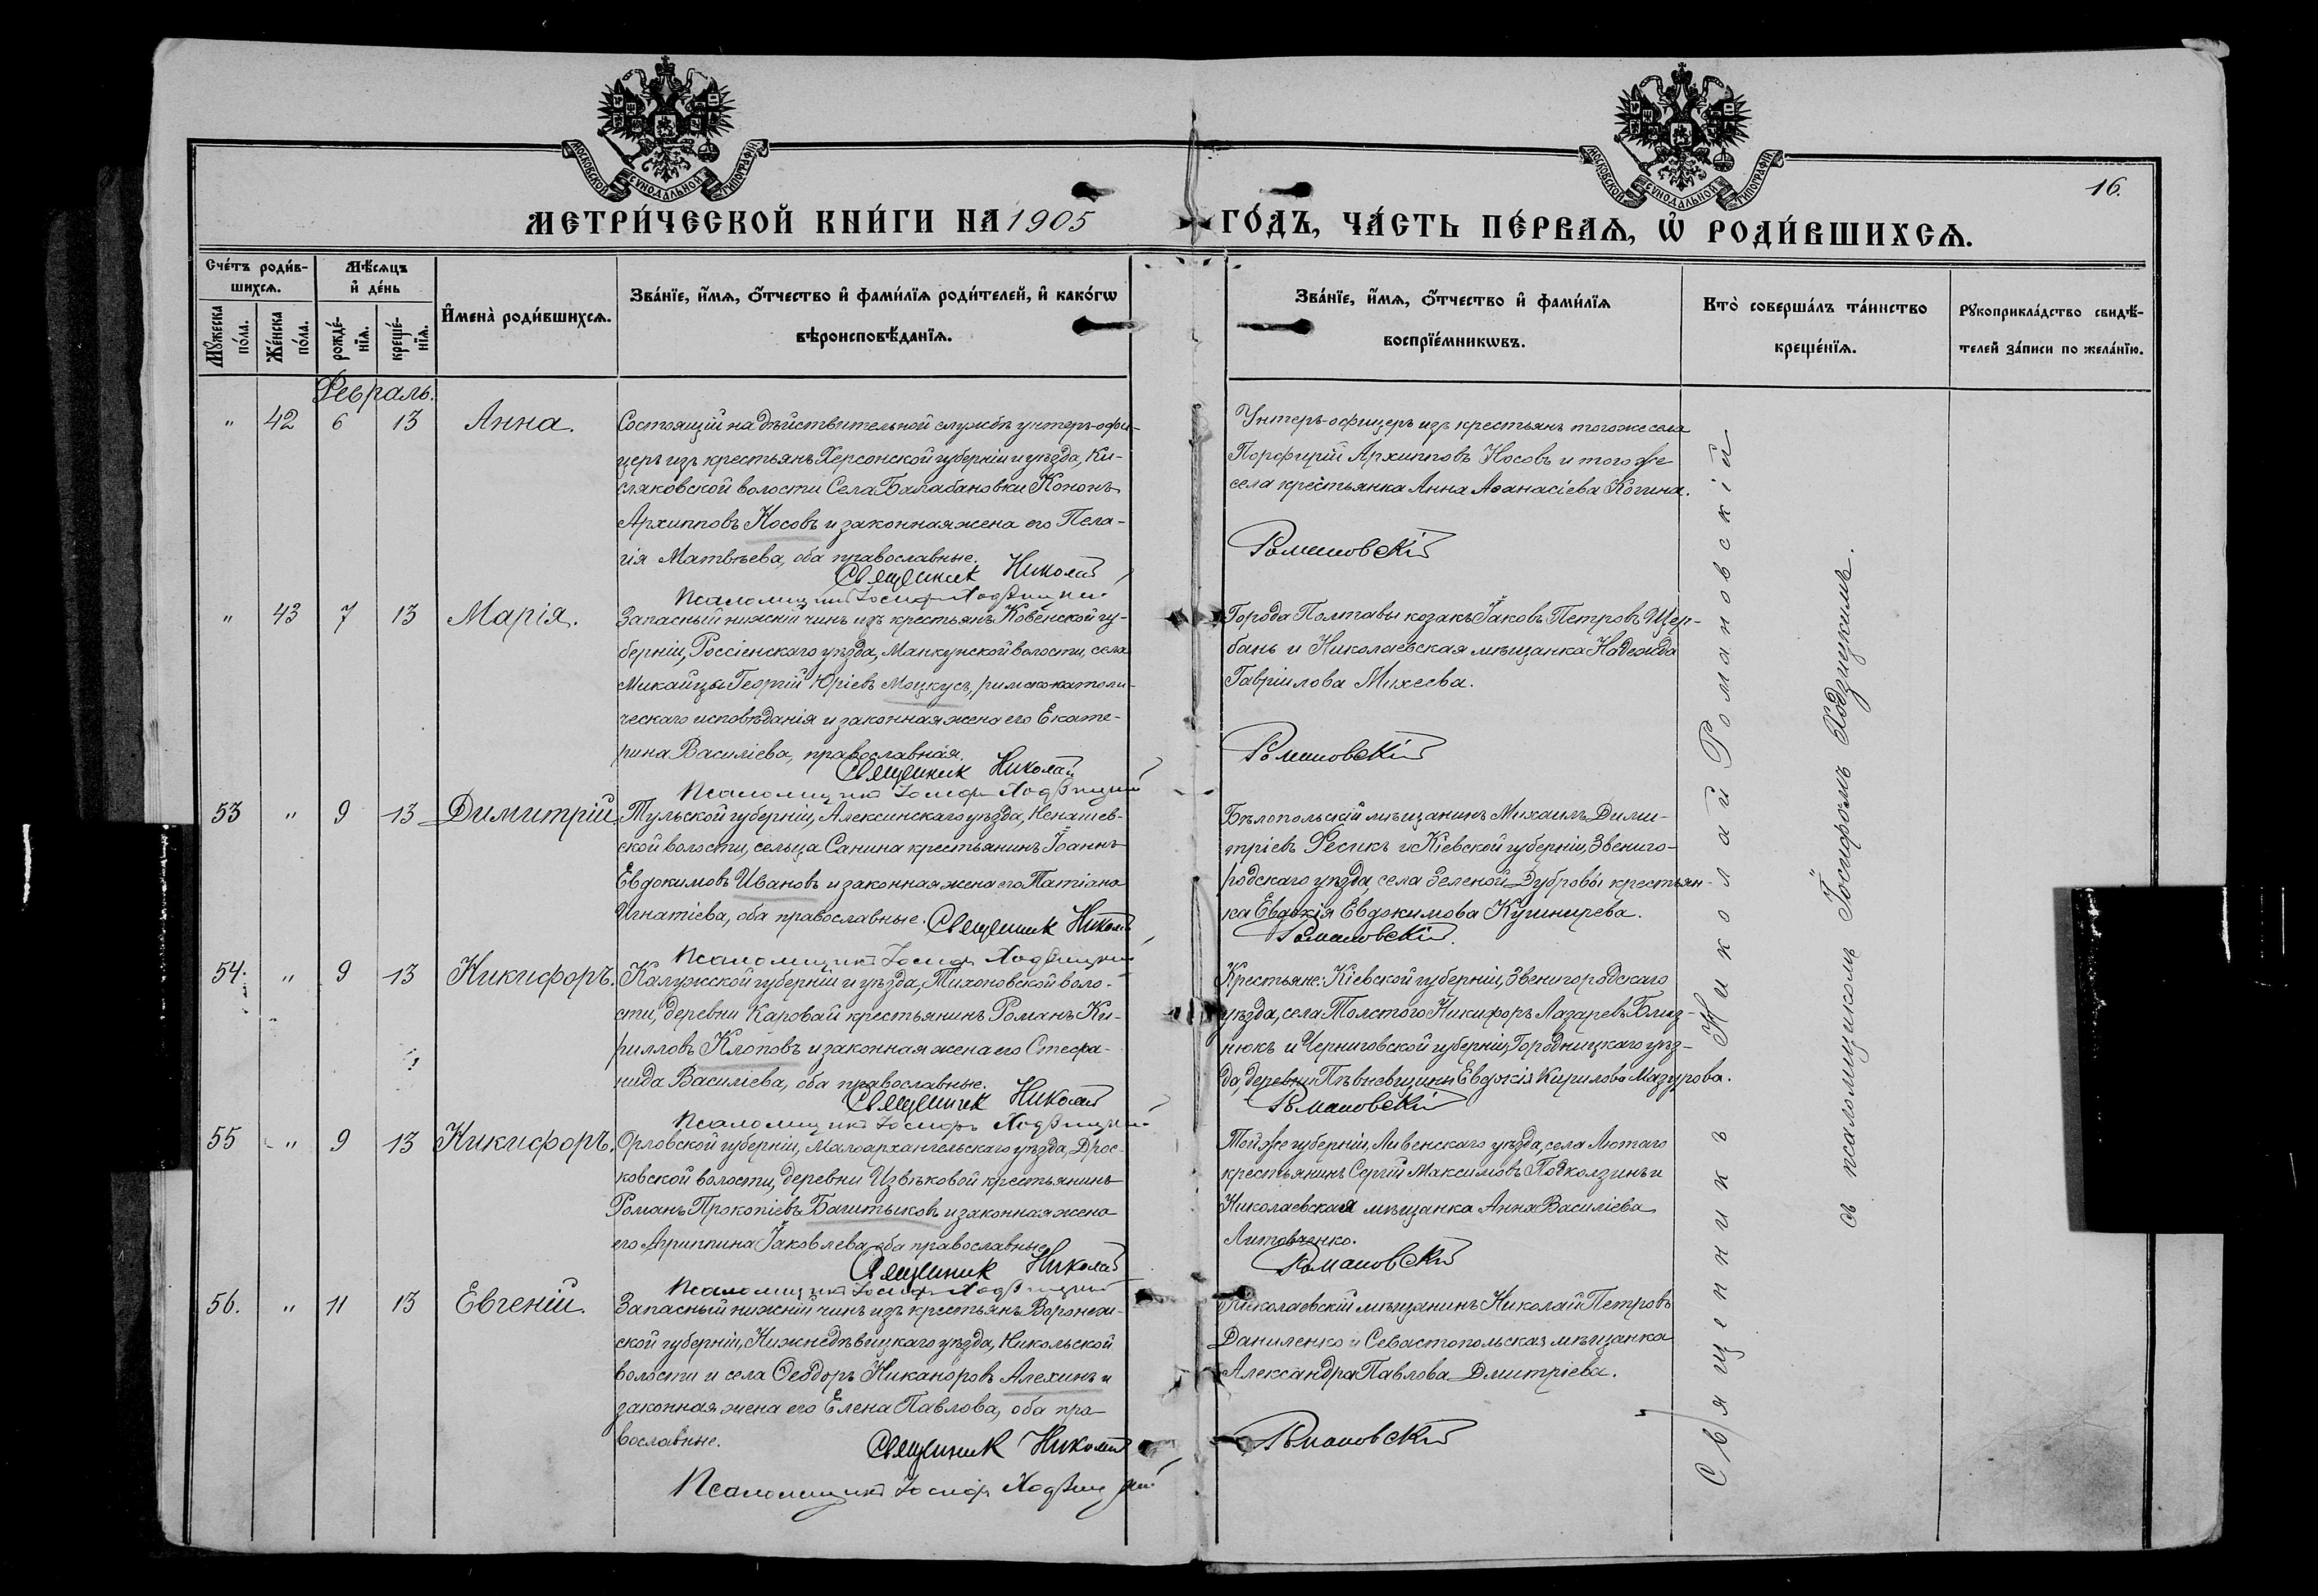 МОСКОВСКОЙ СѴНОДАЛЬНОЙ ТИПОГРАФІИ
МОСКОВСКОЙ СѴНОДАЛЬНОЙ ТИПОГРАФІИ
16.
МЕТРИ́ЧЕСКОЙ КНИ́ГИ НА 1905
ГО́ДЪ, ЧА́СТЬ ПЕ́РВАѦ, Ѡ҆ РОДИ́ВШИХСѦ.
Сче́тъ роди́в-
шихсѧ.
Мѣ́сѧцъ
и҆ де́нь
Мꙋ́жеска по́ла.
Же́нска по́ла.
рожде́-нїѧ.
креще́-нїѧ.
И҆мена̀ роди́вшихсѧ.
Зва́нїе, и҆́мѧ, ѻ҆́тчество и҆ фами́лїѧ роди́телей, и҆ како́гѡ
вѣроисповѣ́данїѧ.
Зва́нїе, и҆́мѧ, ѻ҆́тчество и҆ фами́лїѧ
воспрїе́мникѡвъ.
Кто̀ соверша́лъ та́инство
креще́нїѧ.
Рꙋкоприкла́дство свидѣ́-
телей за́писи по жела́нїю.
Февраль.
" 42 6 13 Анна.
Состоящій на дѣйствительной службѣ унтеръ-офи-
церъ изъ крестьянъ Херсонской губерніи и уѣзда, Ки-
сляковской волости Села Балабановки Кононъ
Архипповъ Носовъ и законная жена его Пела-
гія Матвѣева, оба православные.
Священникъ Николай
Псаломщикъ Іосифъ Ходзицкій
Унтеръ-офицеръ изъ крестьянъ того же села
Порфирій Архипповъ Носовъ и того же
села крестьянка Анна Аѳанасіева Когина.
Романовскій
" 43 7 13 Марія.
Запасный нижній чинъ изъ крестьянъ Ковенской гу-
берніи, Россіенскаго уѣзда, Манкунской волости, села
Микайцы Георгій Юріевъ Моцкусъ, римско католи-
ческаго исповѣданія и законная жена его Екате-
рина Василіева, православная.
Священникъ Николай
Псаломщикъ Іосифъ Ходзицкій
Города Полтавы козакъ Іаковъ Петровъ Щер-
бань и Николаевская мѣщанка Надежда
Гавріилова Михеева.
Романовскій
53 " 9 13 Димитрій.
Тульской губерніи, Алексинскаго уѣзда, Ненашев-
ской волости, сельца Санина крестьянинъ Іоаннъ
Евдокимовъ Ивановъ и законная жена его Татіана
Игнатіева, оба православные. Священникъ Николай
Псаломщикъ Іосифъ Ходзицкій
Бѣлопольскій мѣщанинъ Михаилъ Дими-
тріевъ Фесикъ и Кіевской губерніи, Звениго-
родскаго уѣзда, села Зеленой Дубровы крестьян-
ка Евдокія Евдокимова Кушнирева.
Романовскій.
54. " 9 13 Никифоръ.
Калужской губерніи и уѣзда, Тихоновской воло-
сти, деревни Каровай крестьянинъ Романъ Ки-
рилловъ Клоповъ и законная жена его Стефа-
нида Василіева, оба православные.
Священникъ Николай
Псаломщикъ Іосифъ Ходзицкій
Крестьяне: Кіевской губерніи, Звенигородскаго
уѣзда, села Толстого Никифоръ Лазаревъ Близ-
нюкъ и Черниговской губерніи, Городницкаго уѣз-
да, деревни Пѣвневщины Евдокія Кирилова Мазурова.
Романовскій
55 " 9 13 Никифоръ.
Орловской губерніи, Малоархангельскаго уѣзда, Дрос-
ковской волости, деревни Извѣковой крестьянинъ
Романъ Прокопіевъ Баштыковъ и законная жена
его Агриппина Іаковлева, оба православные.
Священникъ Николай
Псаломщикъ Іосифъ Ходзицкій
Той же губерніи, Ливенскаго уѣзда, села Лютаго
крестьянинъ Сергій Максимовъ Подколзинъ и
Николаевская мѣщанка Анна Василіева
Литовченко.
Романовскій
56. " 11 13 Евгеній.
Запасный нижній чинъ изъ крестьянъ Воронеж-
ской губерніи, Нижнедѣвицкаго уѣзда, Никольской
волости и села Ѳеодоръ Никаноровъ Алехинъ и
законная жена его Елена Павлова, оба пра-
вославные.
Священникъ Николай
Псаломщикъ Іосифъ Ходзицкій
Николаевскій мѣщанинъ Николай Петровъ
Даниленко и Севастопольская мѣщанка
Александра Павлова Дмитріева.
Романовскій
Священникъ Николай Романовскій
съ псаломщикомъ Іосифомъ Ходзицкимъ.